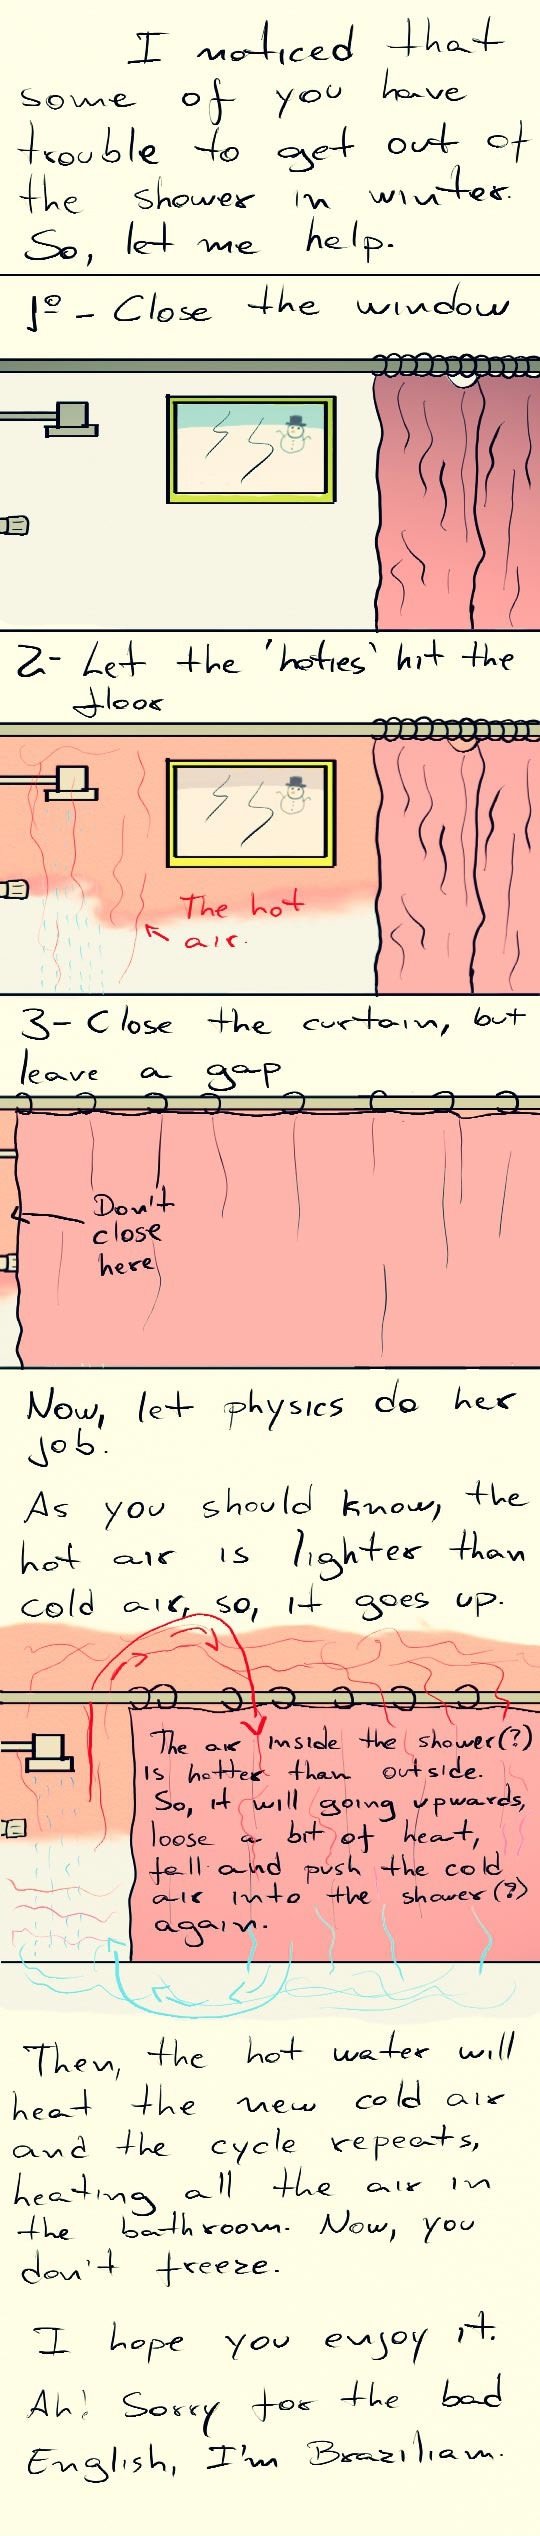 I noticed that
some of you have
trouble to get out of
the shower in winter.
So, let me help.
1º - Close the window
2- Let the 'hoties' hit the
floor
The hot
air.
3- Close the curtain, but
leave a gap
Don't
close
here
Now, let physics do her
job.
As you should know, the
hot air is lighter than
cold air, so, it goes up.
The air inside the shower(?)
is hotter than outside.
So, it will going upwards,
loose a bit of heat,
fell and push the cold
air into the shower(?)
again.
Then, the hot water will
heat the new cold air
and the cycle repeats,
heating all the air in
the bathroom. Now, you
don't freeze.
I hope you enjoy it.
Ah! Sorry for the bad
English, I'm Braziliam.